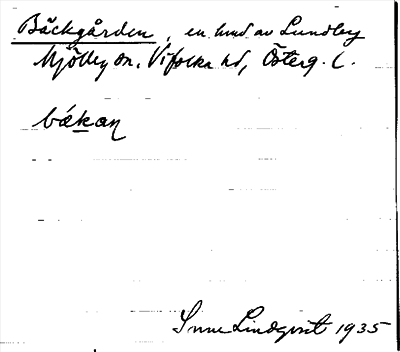 Bäckgården, en hmd av Lundby
Mjölby sn, Vifolka hd, Österg. l.
bækan
Sune Lindqvist 1935